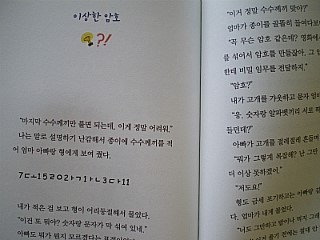 이상한 암호
?!
"마지막 수수께끼만 풀면 되는데, 이게 정말 어려워."
나는 말로 설명하기 난감해서 종이에 수수께끼를 적
어 엄마 아빠랑 형에게 보여 줬다.
내가 적은 걸 보고 형이 어리둥절해서 물었다.
"이건 또 뭐야? 숫자랑 문자가 막 섞여 있네."
아빠도 뭐가 뭔지 모르겠다는 표정이었다.
"이거 정말 수수께끼 맞아?"
엄마가 종이를 꼼꼼히 들여다보
"꼭 무슨 암호 같은데? 영화에
를 섞어서 암호를 만들잖아. 그
한테 비밀 임무를 전달하지."
"암호?"
내가 고개를 갸웃하고 문자
"응. 숫자랑 알파벳끼리 서로
들던데?"
아빠가 고개를 절레절레 흔들며
"뭐가 그렇게 복잡해? 난 그런
더 이상 못하겠어."
"저도요!"
형도 금세 포기하고는
다. 엄마가 내게 물었다.